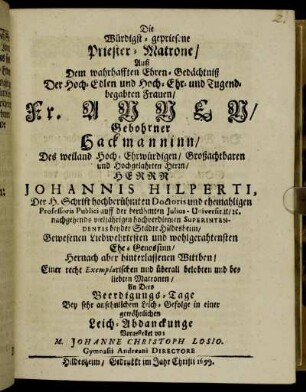 2.
Die
Würdigst-gepriesene
Priester-Matrone/
Auß
Dem wahrhafften Ehren-Gedächtniß
Der Hoch-Edlen und Hoch-Ehr- und Tugend-
begabten Frauen/
Fr.
Gebohrner
Hackmanninn/
Des weiland Hoch-Ehrwürdigen/ Großachtbaren
und Hochgelahrten Herrn/
HERRN
JOHANNIS HILPERTI,
Der H. Schrifft hochberühmten Doctoris und ehemahligen
Professoris Publici auff der berühmten Julius-Universität/ ꝛc.
nachgehends vieljährigen hochverdienten SUPERINTEN-
DENTIS beyder Städte Hildesheim/
Gewesenen Liebwehrtesten und wohlgerahtensten
Ehe-Genossinn/
Hernach aber hinterlassenen Wittben/
Einer recht Exemplarischen und überall belobten und be-
liebten Matronen/
An Dero
Beerdigungs-Tage
Bey sehr ansehnlichem Leich-Gefolge in einer
gewöhnlichen
Leich-Abdanckunge
Vorgestellet von
M. JOHANNE CHRISTOPH LOSIO.
Gymnasii Andreani DIRECTORE
Hildesheim/ Gedruckt im Jahr Christi 1699.